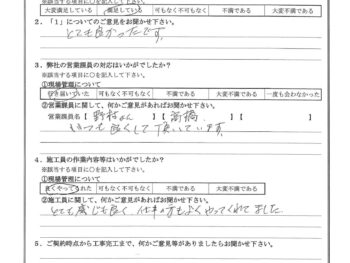 ※該当する項目に○を記入して下さい。
大変満足している 満足している 可もなく不可もなく 不満である 大変不満である
2．「1」についてのご意見をお聞かせ下さい。
とても良かったです。
3．弊社の営業課員の対応はいかがでしたか？
※該当する項目に○を記入して下さい。
①現場管理について
行き届いていた 可もなく不可もなく 不満である 大変不満である 一度も会わなかった
②営業課員に関して、何かご意見があればお聞かせ下さい。
営業課員名 【野村さん】【高橋】
いつも良くして頂いています。
4．施工員の作業内容等はいかがでしたか？
※該当する項目に○を記入して下さい。
①現場管理について
良くやってくれた 可もなく不可もなく 不満である 大変不満である
②施工員に関して、何かご意見があればお聞かせ下さい。
とても感じも良く 仕事の方もよくやってくれてました
5．ご契約時点から工事完工まで、何かご意見等がありましたらお聞かせ下さい。